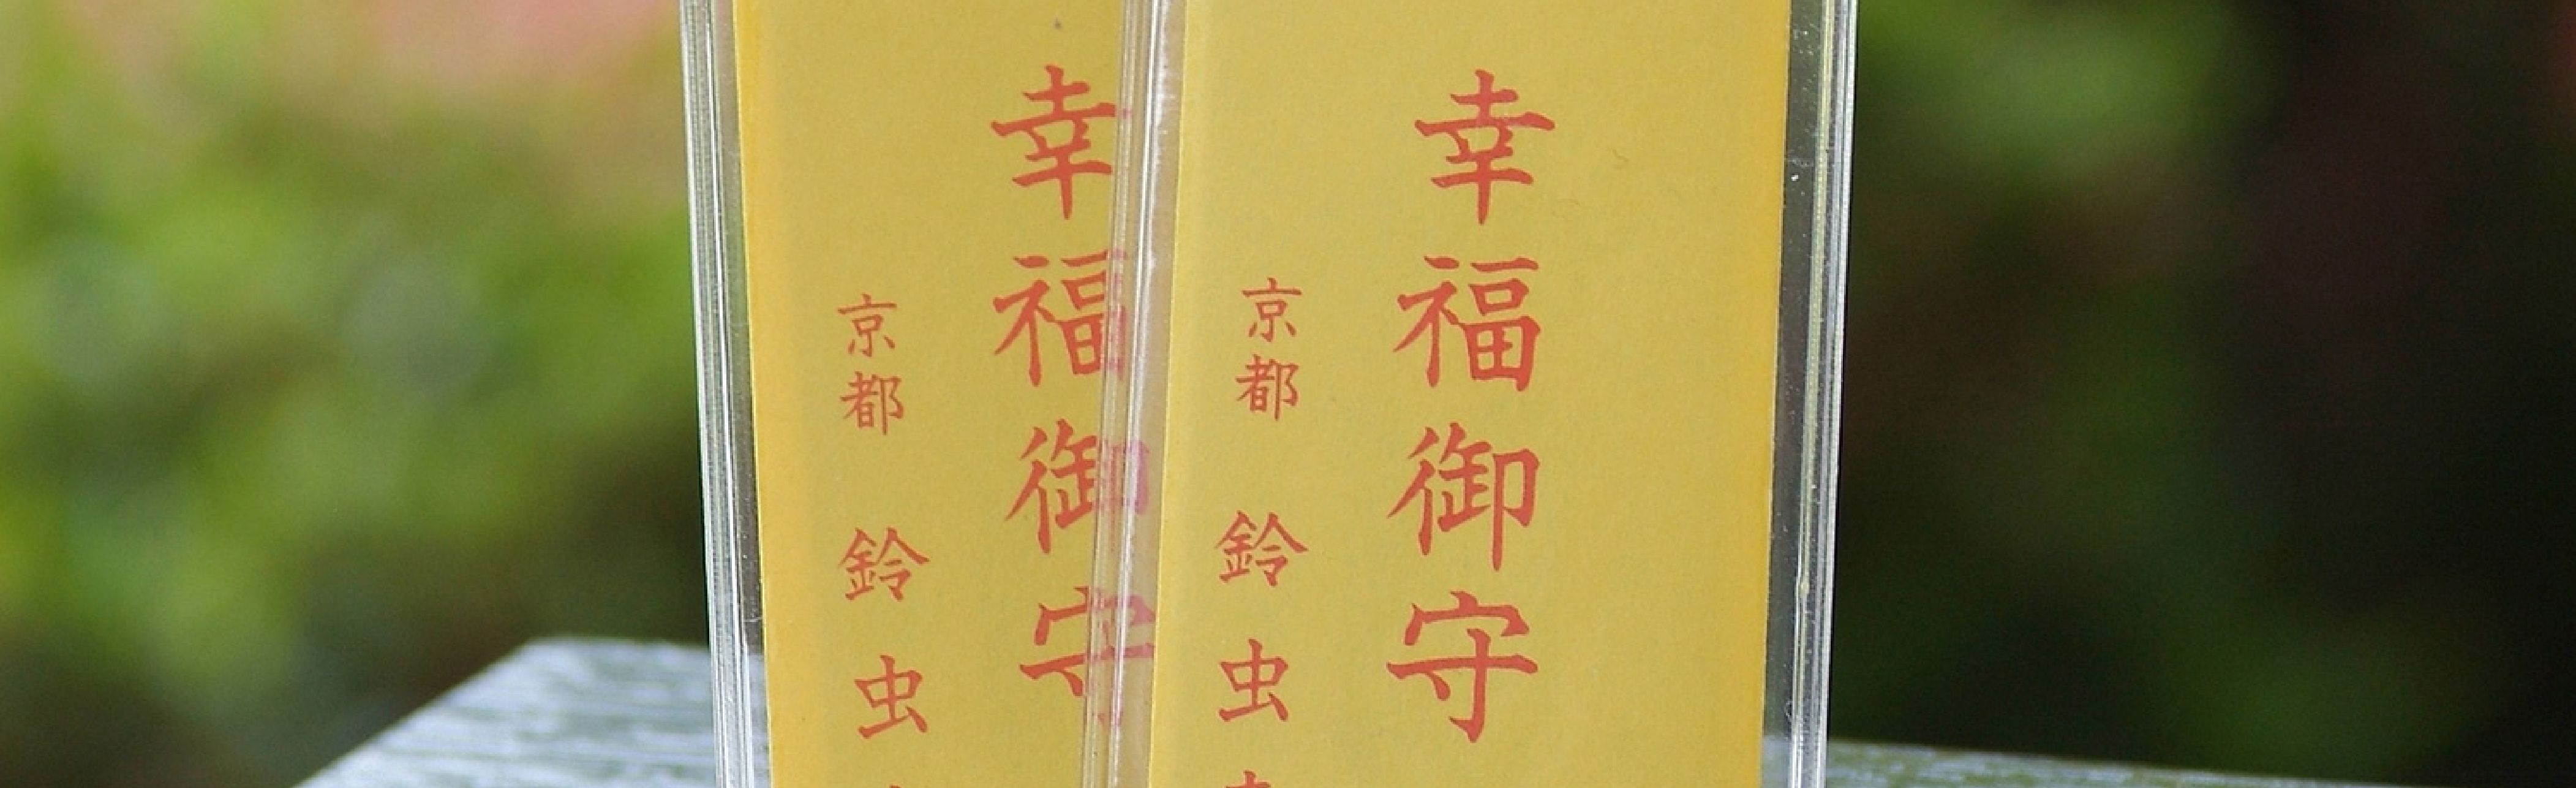 幸福御守
京都 鈴虫
幸福御守
京都 鈴虫